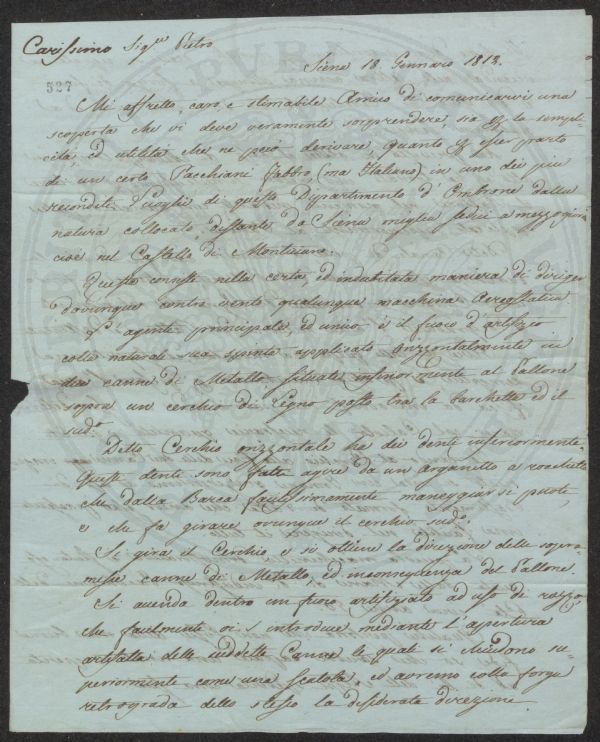 Carissimo Sig.re Pietro
Siena 18. Gennaro 1813.
527
Mi affretto, caro e stimabile Amico di comunicarvi una
scoperta che vi deve veramente sorprendere, sia per la sempli-
cità, ed utilità che ne può derivare, quanto per esser parto
di un certo Pacchiani Fabbro (ma Italiano) in uno dei più
reconditi Luoghi di questo Dipartimento d'Ombrone dalla
natura collocato, distante da Siena miglia sedici a mezzogior
cioè nel Castello di Monticiano.
Questo consiste nella certa, ed indubitata maniera di diriger
dovunque contro vento qualunque macchina Aereostatica
agente principale, ed unico è il fuoco d'artifizio
colla naturale sua spinta applicato orizzontalmente in
due canne di Metallo situate inferiormente al Pallone
sopra un cerchio di Legno posto tra la barchetta ed il
sud.o
Detto Cerchio orizzontale ha dei denti inferiormente.
Questi denti sono fatti agire da un arganetto a rocchetto
che dalla Barca facilissimamente maneggiar si puote,
e che fa girare ovunque il cerchio sud.o
Si gira il Cerchio, e si ottiene la direzione delle sopra
messe canne di Metallo, ed in conseguenza del Pallone.
Si accenda dentro un fuoco artifiziato ad uso di razzo,
che facilmente vi s'introduce mediante l'apertura
artifatta delle suddette Canne le quali si chiudono su-
periormente come una scatola, ed avremo colla forza
retrograda dello stesso la desiderata direzione.